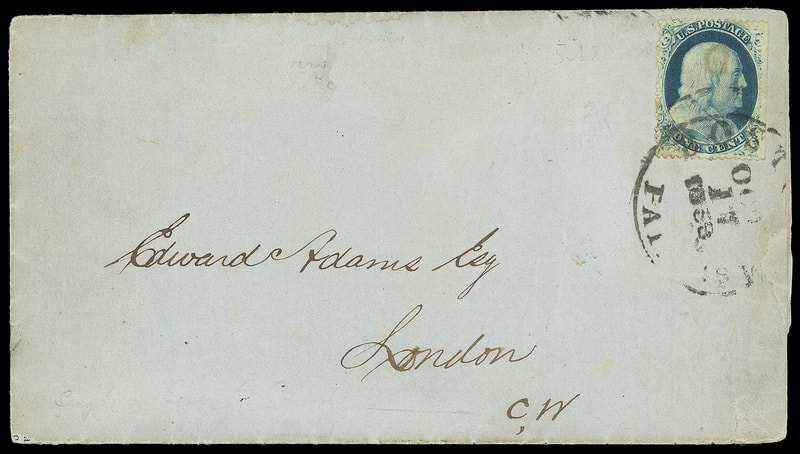 U.S. POSTAGE
ONE CENT
FAL
17
1858
Edward Adams Esq
London
C, W